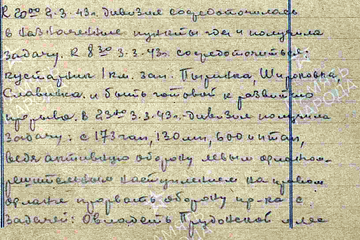 К 20 00 2.3.43г. дивизия сосредоточилась
в назначенные пункты где и получила
задачу. К 8 30 3.3.43г. сосредоточиться:
кустарник 1 км. зап. Широковка,
Славинка и быть готовой к развитию
прорыва. В 23 3.3.43г. дивизия получила
задачу: с 173 гап, 130 мп,
ведя активную оборону левым флангом
решительным наступлением на правом
фланге прорвать оборону пр-ка с
задачей: Овладеть